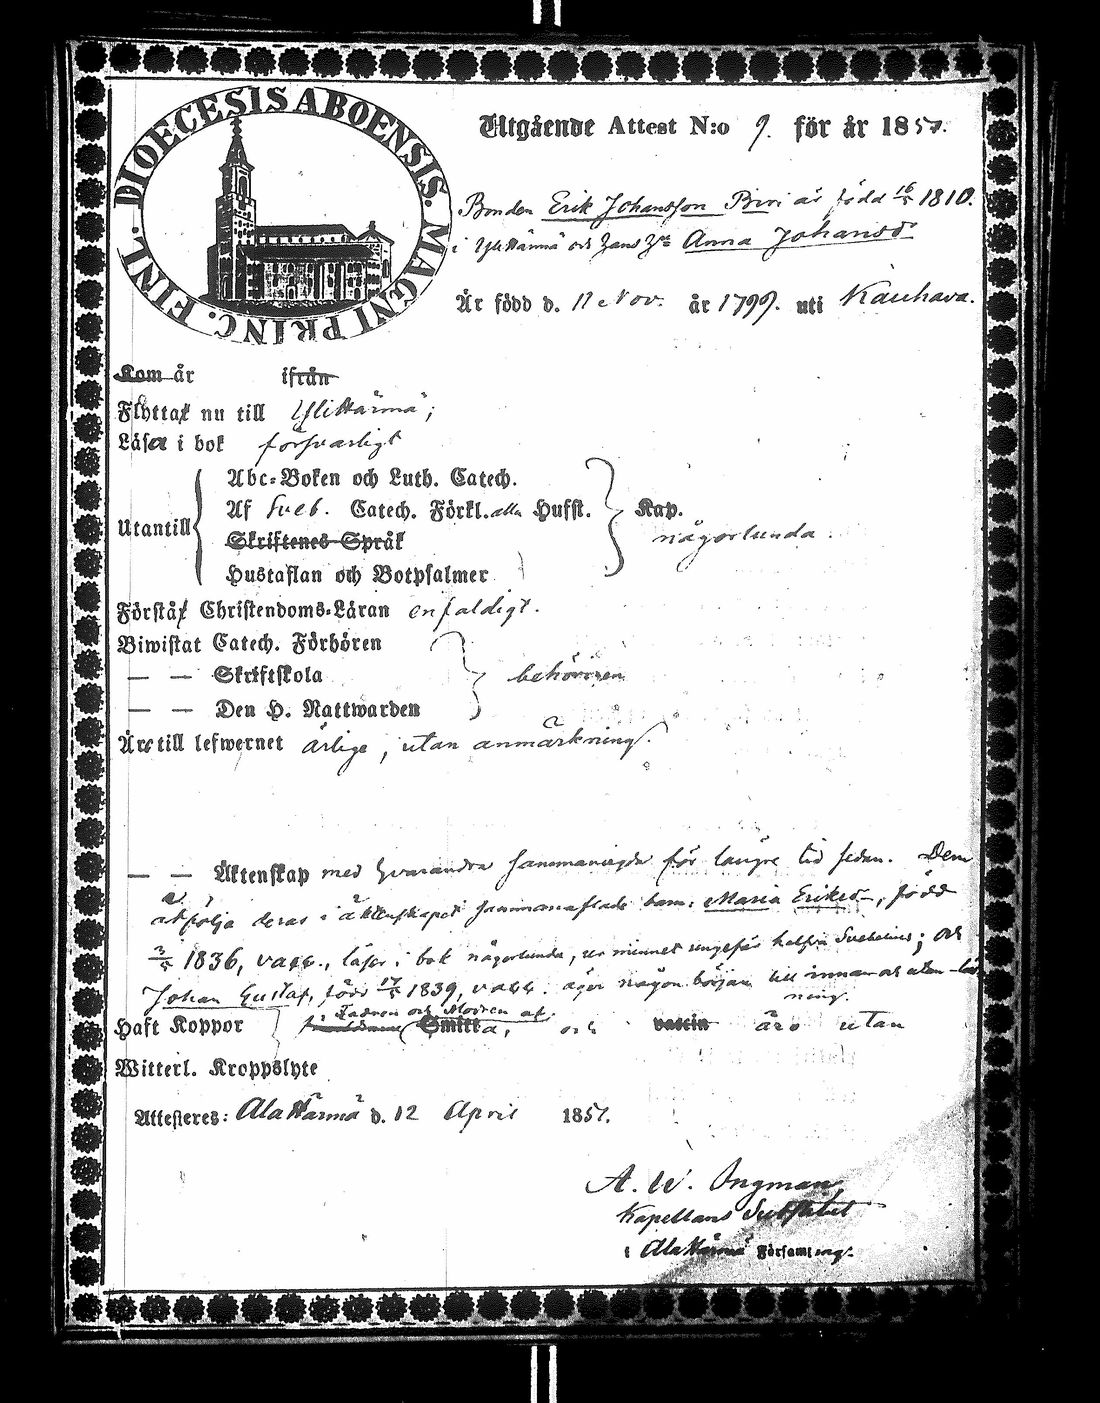 DIOECESIS ABOENSIS. MAGNI PRINC. FINL.
Utgående Attest N:o 9. för år 1851.
Bonden Erik Johansson Biri är född 16/5 1810.
i YliHärmä och hans H:u Anna Johansd:r
Är född d. 11 Nov. år 1799. uti Kauhava.
Kom år ifrån
Flytta nu till YliHärmä;
Läsa i bok försvarligt
Abc-Boken och Luth. Catech.
Af Sveb. Catech. Förkl. alla Hufst. Kap.
Utantill någorlunda.
Skriftenes Språk
Hustaflan och Botpsalmer
Förstå Christendoms-Läran enfaldigt.
Biwistat Catech. Förhören
— — Skriftskola behörigen
— — Den H. Nattwarden
Äro till lefwernet ärlige, utan anmärkning.
— — Äktenskap med hvarandra sammanvigda för längre tid sedan. Dem
åtfölja deras i äktenskapet sammanaflade barn: Maria Eriksd:r, född
3/5 1836, vacc., läser i bok någorlunda, ur minnet ungefär halfva Svebelius; och
Johan Gustaf, född 17/5 1839, vacc. äger någon början till innan och utan-läs
ning.
Fadren och Modren af
Haft Koppor Smitta, och vaccin äro utan
Witterl. Kroppslyte
Attesteres: AlaHärmä d. 12 April 1851.
A. W. Ingman,
Kapellans Substitut
i AlaHärmä Församling.